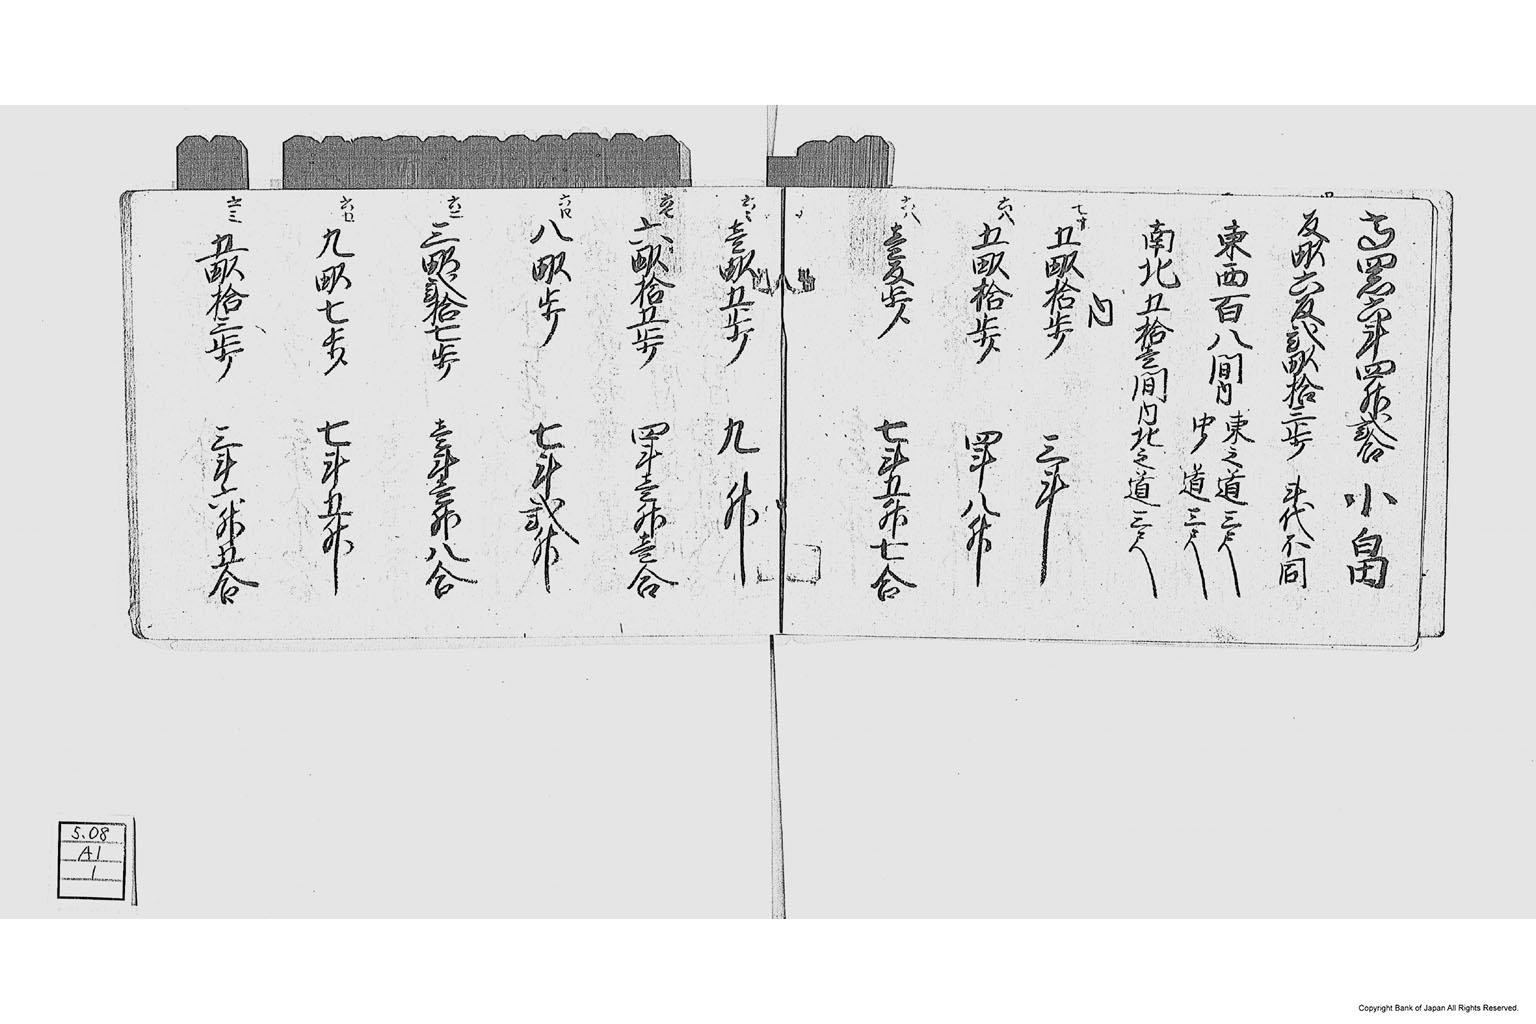 高四石六斗四升弐合 小畠
反畝六反弐畝拾三歩 斗代不同
東西百八間内 東之道三尺
中道三尺
南北五拾壱間内北之道三尺
内
七寸
五畝拾歩 三斗
六八
五畝拾歩 四斗八升
六八
壱反歩 七斗五升七合
六ミ
壱畝五歩 九升
六七
六畝拾五歩 四斗壱升壱合
六四
八畝歩 七斗弐升
六二
三畝弐拾七歩 壱斗壱升八合
六七
九畝七歩 七斗五升
六ミ
五畝拾三歩 三斗六升五合
5.08
A1
1
Copyright Bank of Japan All Rights Reserved.